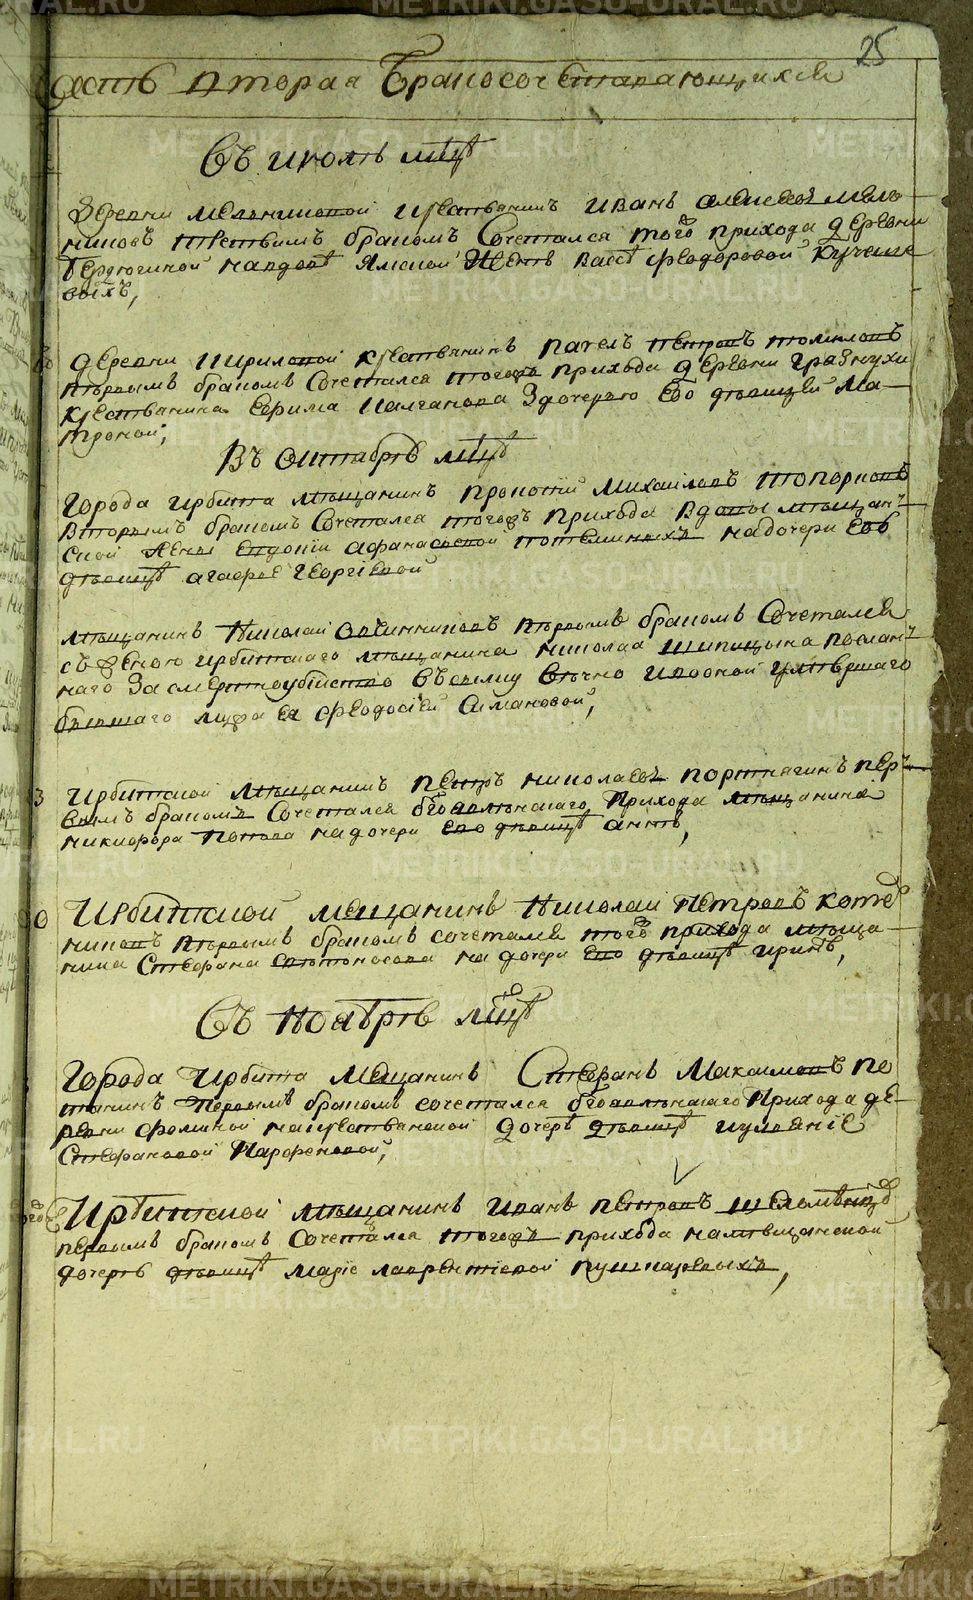 25
Часть вторая Бракосочетавающихся
Въ июлѣ мцѣ
Деревни Мельниковой крестьянинъ Иванъ Алексеевъ Мель
никовъ третьимъ бракомъ Сочетался тогож прихода деревни
Бердюгиной на вдовѣ Ямской Женѣ Вассѣ Феодоровой Кучеше
выхъ,
деревни Кириловой крестьянинъ Павелъ Петровъ Томиловъ
Первымъ бракомъ Сочетался тогожъ прихода деревни Грязнухи
крестьянина Ефима Калганова Здочерью Его девицей Ма-
троной;
Въ Октябрѣ мцѣ
города Ирбита мѣщанинъ Прокопий Михайловъ Топорковъ
вторымъ бракомъ Сочетался тогожъ прихода вдовы мѣщан-
ской жены Евдокии Афанасьевой Потемкиныхъ на дочери Еѣ
дѣвицѣ Агафье Георгиевой
мѣщанинъ Николай Овчинниковъ Первымъ бракомъ Сочетался
съ женою Ирбитскаго мѣщанина Николая Шипицына послан-
наго За смертноубийство Въ силку вѣчно
бывшаго мужа Ея Феодосией Симановой,
3 Ирбитской мѣщанинъ Петръ Николаевъ Портнягинъ пер-
вымъ бракомъ Сочетался Прихода мѣщанина
никифора Попова на дочери Его дѣвицѣ Аннѣ,
0 Ирбитской мещанинъ Николай Петровъ Коте
никовъ Первымъ бракомъ сочетался тогож прихода мѣща-
нина Стефана Светоносова на дочери Его дѣвицѣ Иринѣ,
Въ Ноябрѣ мцѣ
города Ирбита Мещанинъ Стефанъ Максимовъ По
первымъ бракомъ сочетался Прихода де-
ревни Фоминой на крестьянской дочерѣ дѣвицѣ
Стефановой Парфеновой,
Ирбитской мѣщанинъ Иванъ Петровъ
первымъ бракомъ Сочетался тогожъ прихода на мѣщанской
дочерѣ дѣвицѣ Марiе Лаврентiевой Пушкаревыхъ,